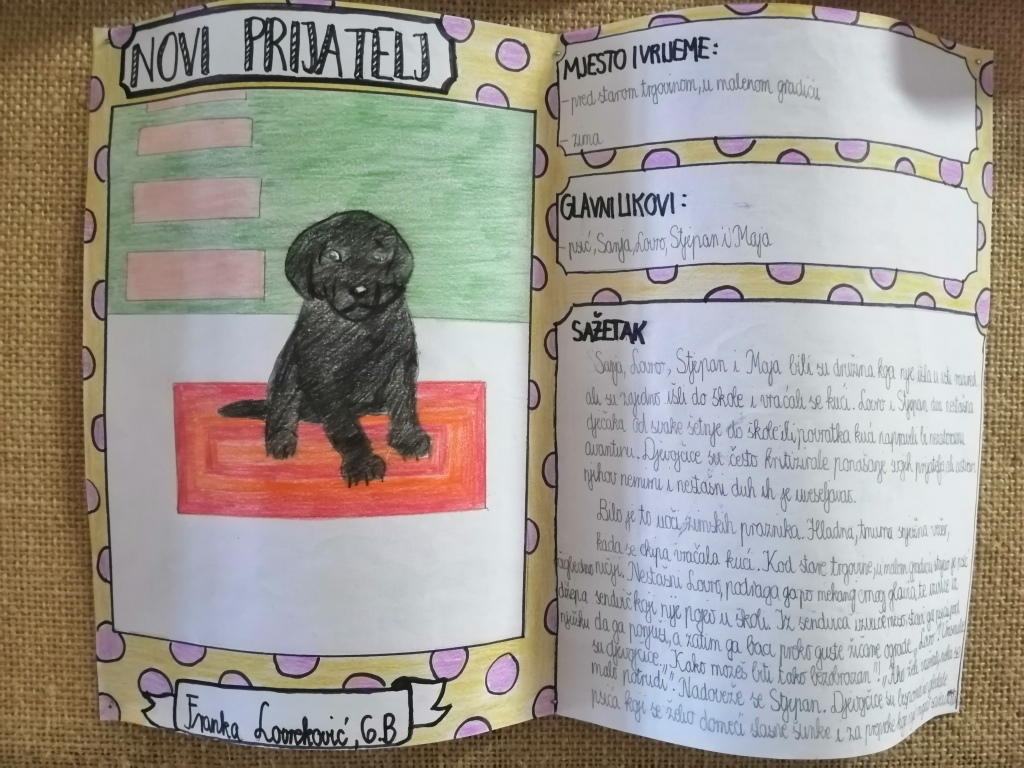 NOVI PRIJATELJ
Franka Lovreković, 6.B
MJESTO I VRIJEME:
- pred starom trgovinom, u malenom gradiću
- zima
GLAVNI LIKOVI:
- psić, Sanja, Lovro, Stjepan i Maja
SAŽETAK
Sanja, Lovro, Stjepan i Maja bili su družina koja nije išla u isti razred
ali su zajedno išli do škole i vraćali se kući. Lovro i Stjepan, dva nestašna
dječaka od svake šetnje do škole ili povratka kući napravili bi nestvarnu
avanturu. Djevojčice su često kritizirale ponašanje svojih prijatelja ali
njihov nemirni i nestašni duh ih je uveseljavao.
Bilo je to uoči zimskih praznika. Hladna, tmurna snježna večer,
kada se ekipa vraćala kući. Kod stare trgovine, u malom gradiću
ničiji. Nestašni Lovro, podraga ga po mekanoj crnoj glavi, te izvuče iz
džepa sendvič koji nije pojeo u školi. Iz sendviča izvuče meso, stavi ga psiću pod
njušku da ga ponjuši, a zatim ga baci preko guste žičane ograde. „Lovro!"
su djevojčice. „Kako možeš biti tako bezobrazan"!, „Ako želi
malo potrudi." Nadoveže se Stjepan. Djevojčice su
psića koji se želio domoći slasne šunke i za